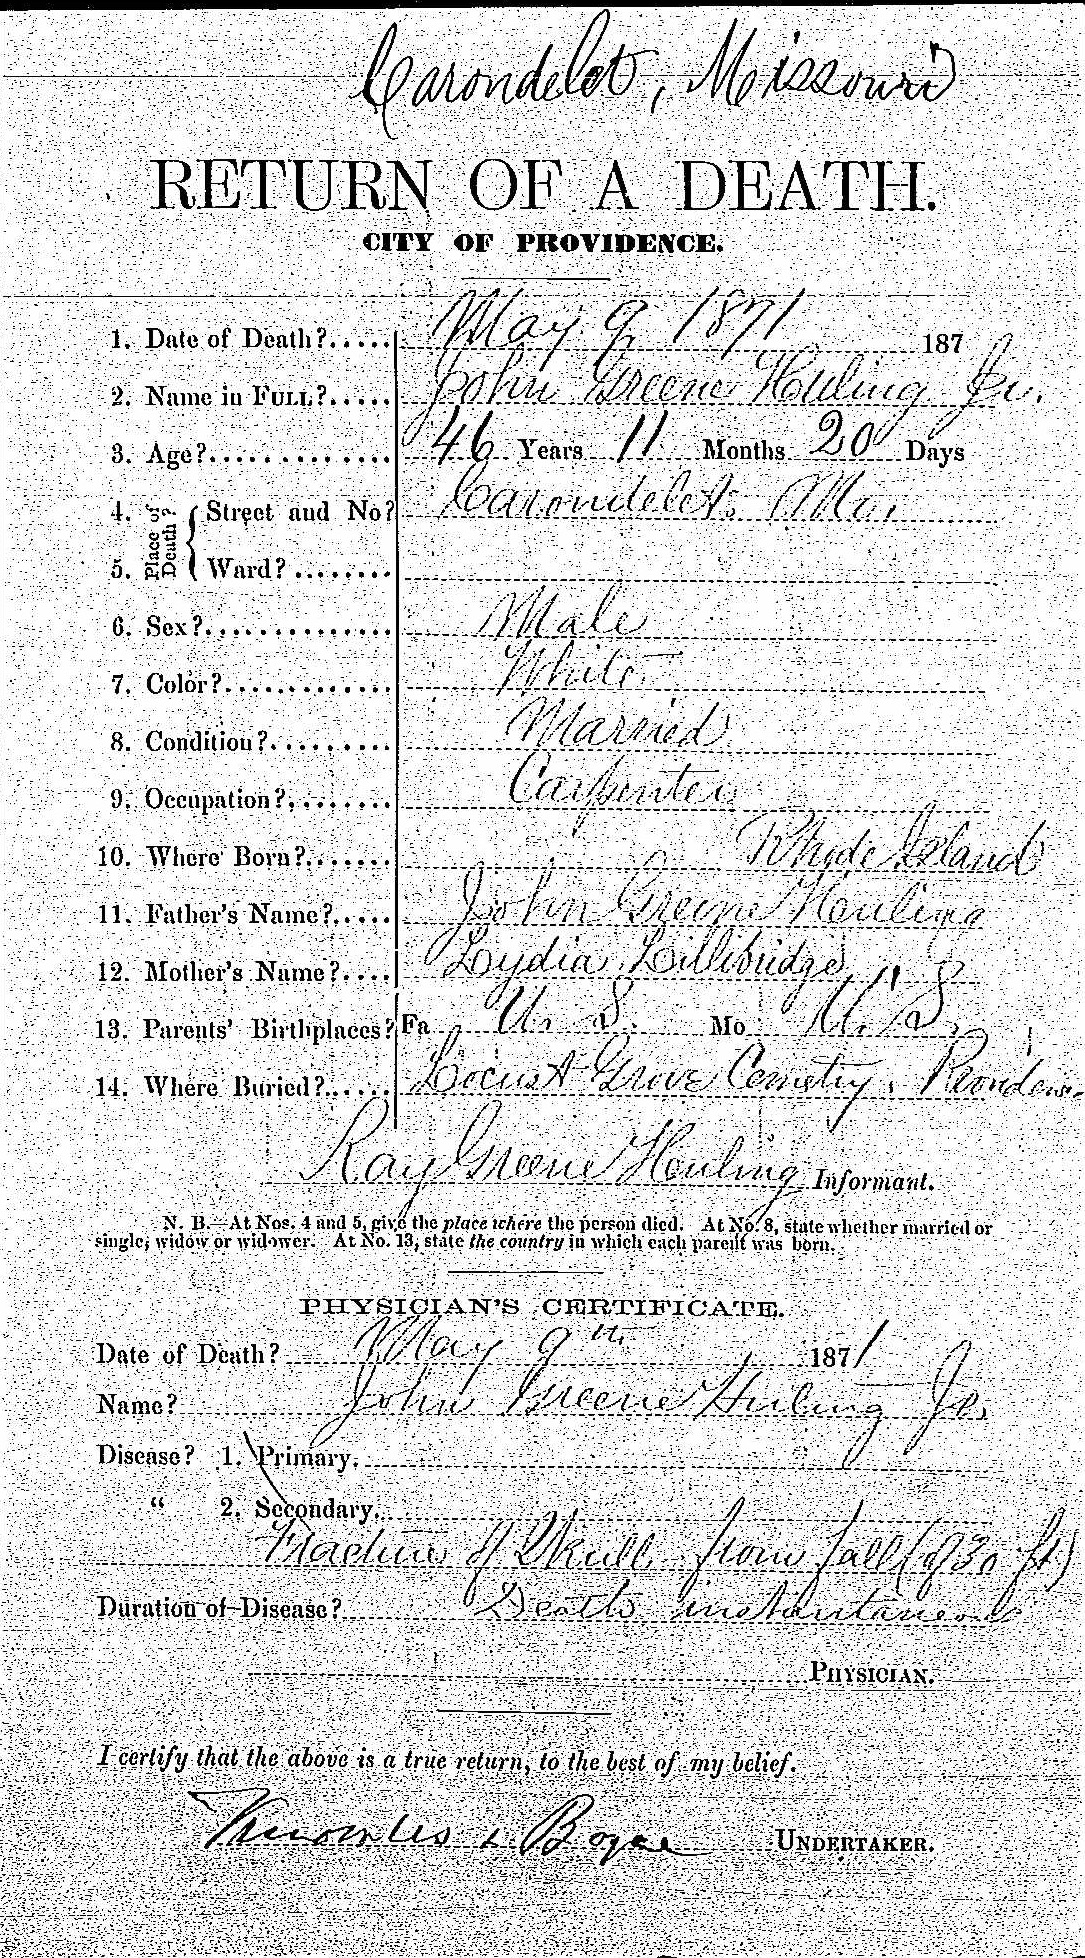 Carondelet, Missouri
RETURN OF A DEATH.
CITY OF PROVIDENCE.
1. Date of Death?..... May 9 1871 187
2. Name in FULL?..... John Greene Huling Jr.
3. Age?.............. 46 Years 11 Months 20 Days
4. Place of Death? { Street and No? Carondelet. Mo.
5. Ward?........
6. Sex?.............. Male
7. Color?............. White
8. Condition?......... Married
9. Occupation?........ Carpenter
10. Where Born?....... Rhode Island
11. Father's Name?..... John Greene Huling
12. Mother's Name?.... Lydia Lillibridge
13. Parents' Birthplaces? Fa U. S. Mo U. S.
14. Where Buried?..... Locust Grove Cemetry,
Ray Greene Huling Informant.
N. B.—At Nos. 4 and 5, give the place where the person died. At No. 8, state whether married or
single, widow or widower. At No. 13, state the country in which each parent was born.
PHYSICIAN'S CERTIFICATE.
Date of Death? May 9th 1871
Name? John Greene Huling Jr.
Disease? 1. Primary.
" 2. Secondary.
Fracture of Skull from fall (of 30 ft)
Duration of Disease? Death instantaneous
PHYSICIAN.
I certify that the above is a true return, to the best of my belief.
Knowles & UNDERTAKER.